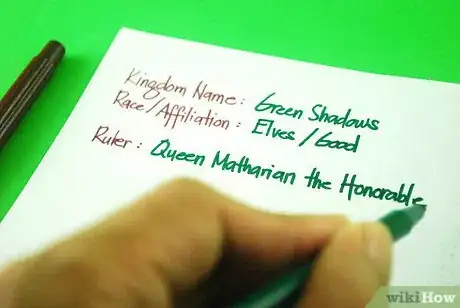 Kingdom Name: Green Shadows
Race/Affiliation: Elves/Good
Ruler: Queen Matharian the Honorable
wikiHow